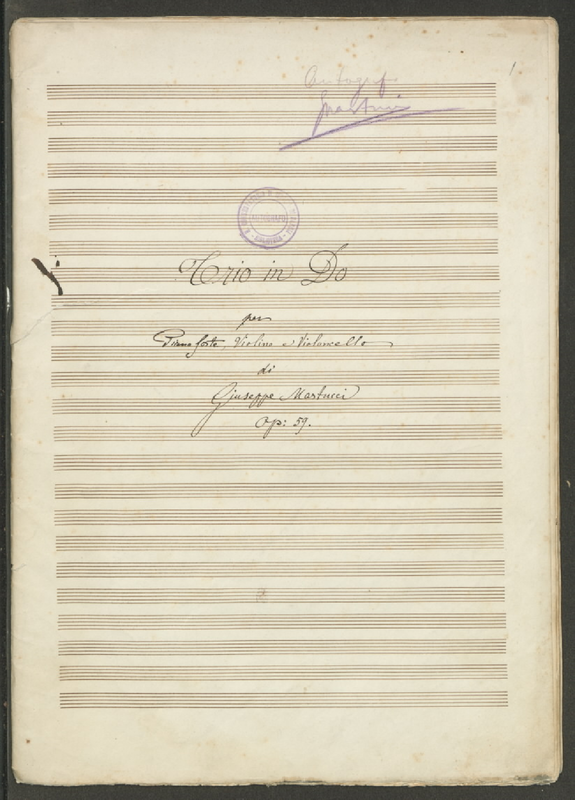 1
Autografo
Martucci
AUTOGRAFO
Trio in Do
per
Pianoforte, Violino e Violoncello
di
Giuseppe Martucci
Op: 59.